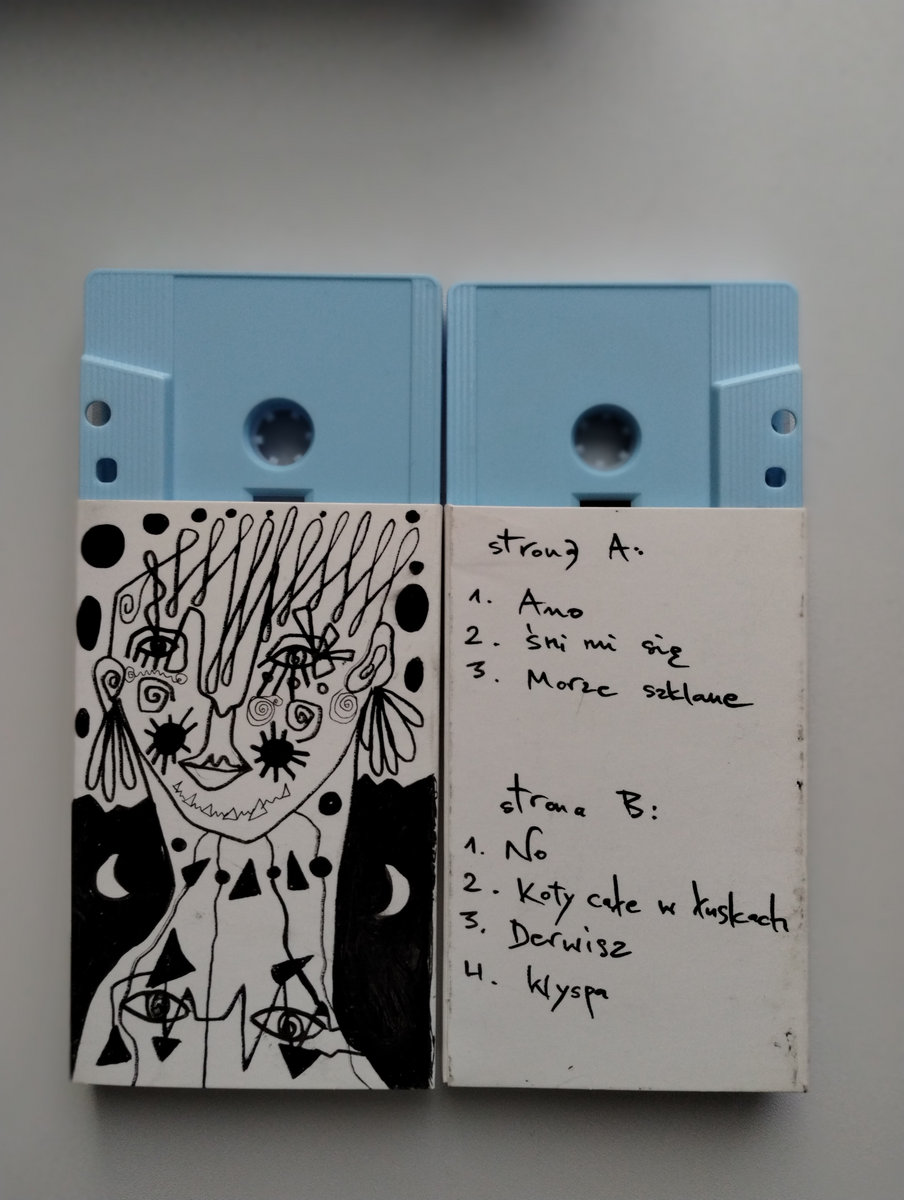 strona A:
1. Amo
2. śni mi się
3. Morze szklane
strona B:
1. No
2. Koty całe w łuskach
3. Derwisz
4. Wyspa